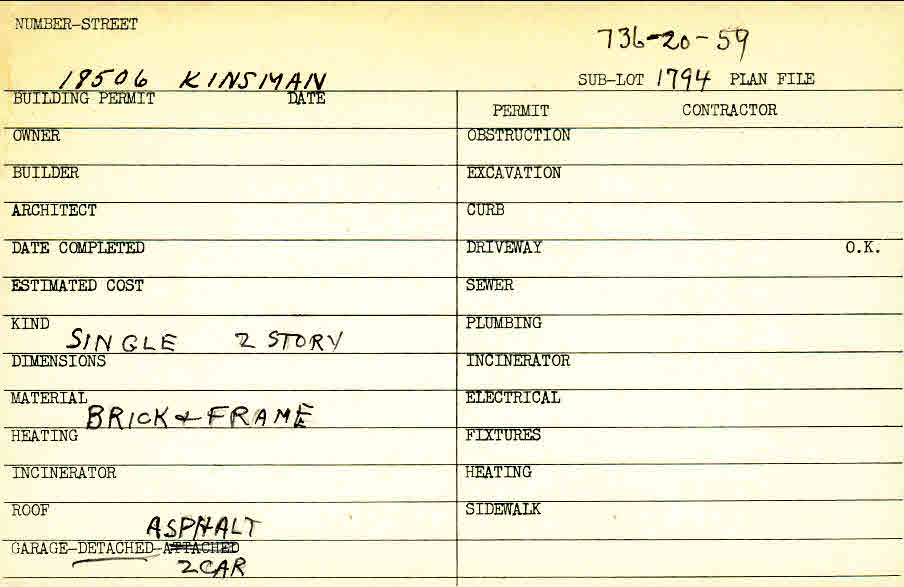 NUMBER-STREET
736-20-59
18506 KINSMAN
SUB-LOT 1794 PLAN FILE
BUILDING PERMIT DATE
PERMIT CONTRACTOR
OWNER
OBSTRUCTION
BUILDER
EXCAVATION
ARCHITECT
CURB
DATE COMPLETED
DRIVEWAY O.K.
ESTIMATED COST
SEWER
KIND
SINGLE 2 STORY
PLUMBING
DIMENSIONS
INCINERATOR
MATERIAL
BRICK & FRAME
ELECTRICAL
HEATING
FIXTURES
INCINERATOR
HEATING
ROOF
ASPHALT
SIDEWALK
GARAGE-DETACHED-ATTACHED
2 CAR